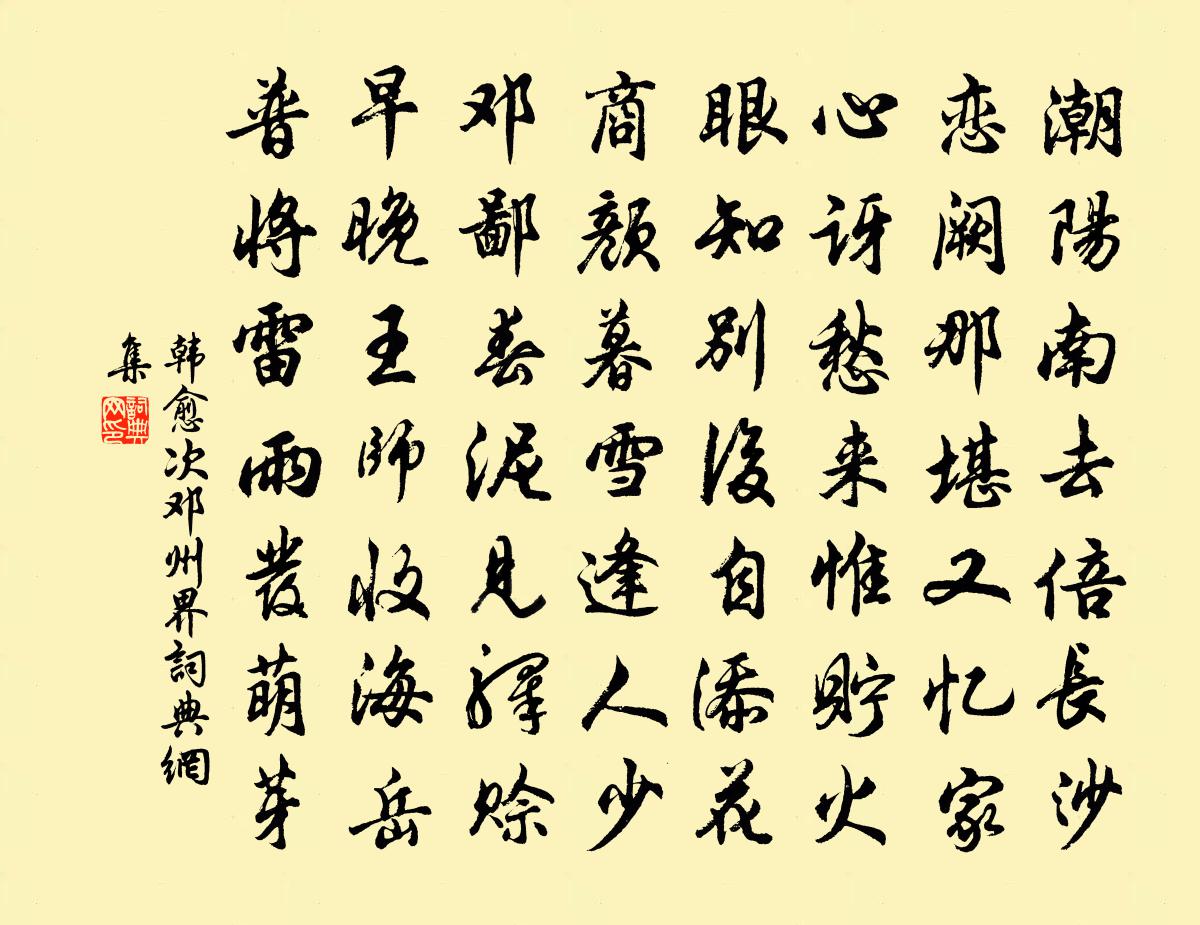 潮陽南去倍長沙
恋阙那堪又忆家
心讶愁来惟貯火
眼知别後自添花
商颜暮雪逢人少
邓鄙春泥見驛赊
早晚王师收海岳
普將雷雨發萌芽
韩愈次邓州界詞典網
集
詞典网印